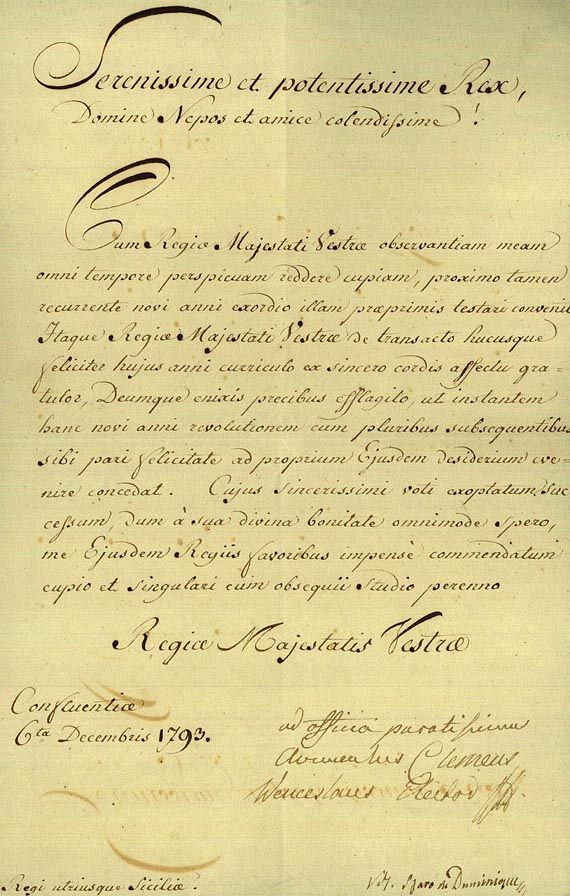 Serenissime et potentissime Rex,
Domine Nepos et amice colendissime!
Cum Regiæ Majestati Vestræ observantiam meam
omni tempore perspicuam reddere cupiam, proximo tamen
recurrente novi anni exordio illam præprimis testari convenit
Itaque Regiæ Majestati Vestræ de transacto hucusque
feliciter hujus anni curriculo ex sincero cordis affectu gra=
tulor, Deumque enixis precibus efflagito, ut instantem
hanc novi anni revolutionem cum pluribus subsequentibus
sibi pari felicitate ad proprium Ejusdem desiderium eve=
nire concedat. Cujus sincerissimi voti exoptatum suc
cessum, dum à sua divina bonitate omnimode spero,
me Ejusdem Regiis favoribus impensè commendatum
cupio et singulari cum obsequii studio perenno
Regiæ Majestatis Vestræ
Confluentiæ
6ta Decembris 1793.
ad officia paratissimus
Avunculus Clemens
Wenceslaus Elector
Regi utriusque Siciliæ.
Vdt.